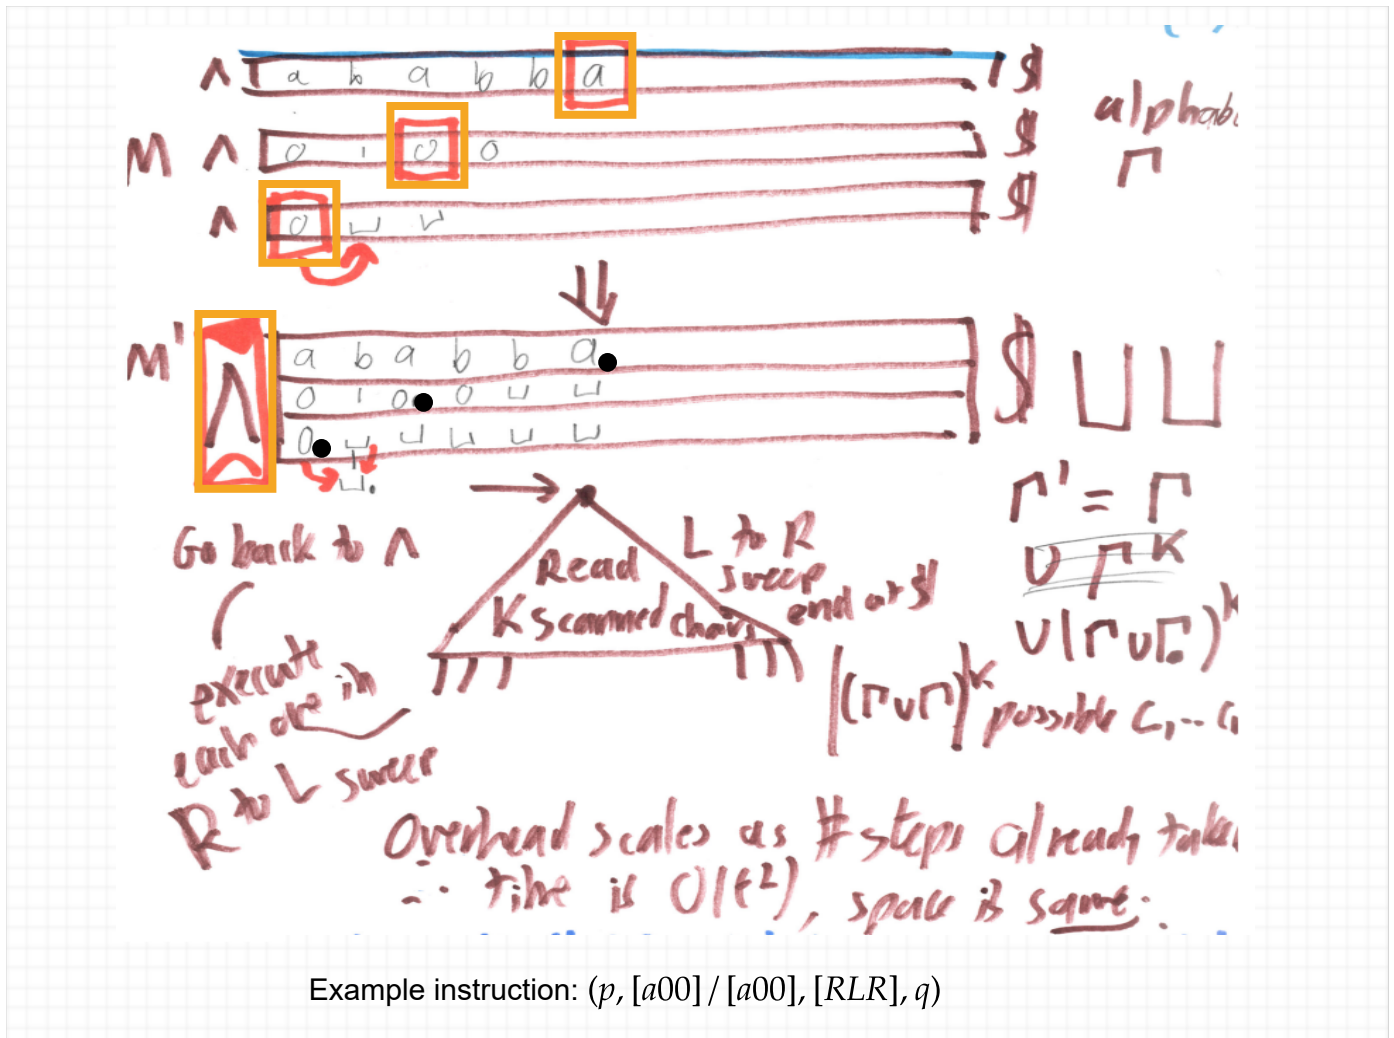 Λ a b a b b a $
alphab
M Λ 0 1 0 0 $
Γ
Λ 0 ⊔ ⊔ $
M' Λ a b a b b a $ ⊔ ⊔
0 1 0 0 ⊔ ⊔
0 ⊔ ⊔ ⊔ ⊔ ⊔
⊔.
Go back to Λ
execute
each one in
R to L sweep
Read
K scanned chars
L to R
sweep
end at $
Γ' = Γ
∪ Γ^K
∪ (Γ ∪ Γ.)^K
|(Γ∪Γ)^K| possible C,..
Overhead scales as # steps already take
∴ time is O(t²), space is same.
Example instruction: (p, [a00] / [a00], [RLR], q)